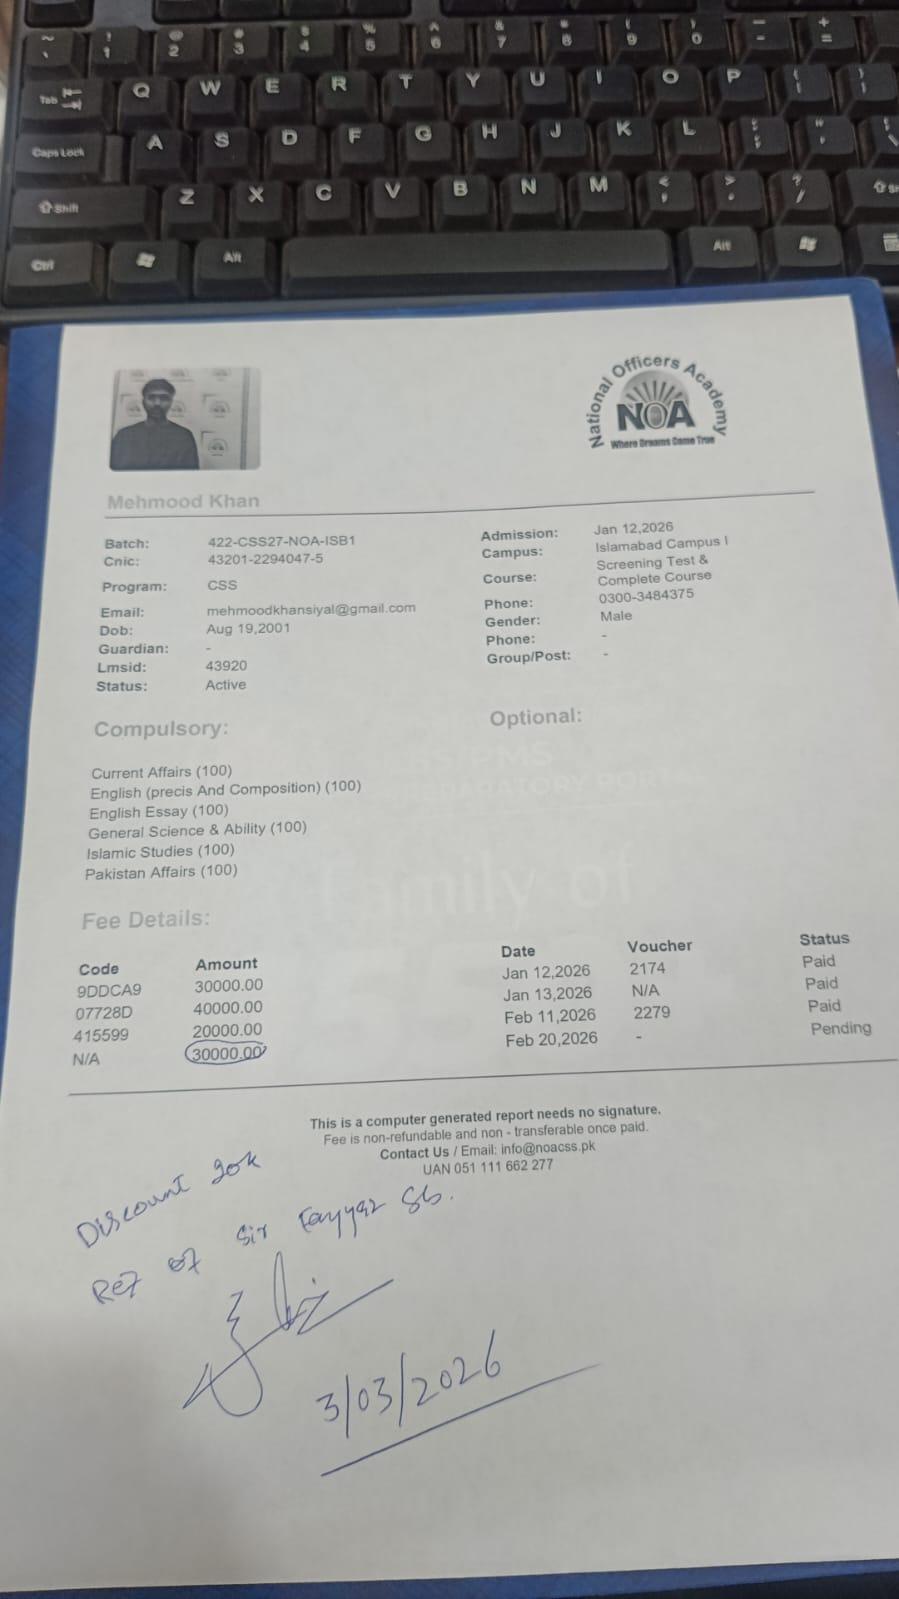 ~ ! @ # $ % ^ & * ( ) _ +
` 1 2 3 4 5 6 7 8 9 0 - =
Tab Q W E R T Y U I O P { }
[ ]
Caps Lock A S D F G H J K L : "
; '
Shift Z X C V B N M < > ?
, . /
Ctrl Alt Alt
National Officers Academy
NOA
Where Dreams Come True
Mehmood Khan
Batch: 422-CSS27-NOA-ISB1 Admission: Jan 12,2026
Cnic: 43201-2294047-5 Campus: Islamabad Campus I
Program: CSS Course: Screening Test &
Complete Course
Email: mehmoodkhansiyal@gmail.com Phone: 0300-3484375
Dob: Aug 19,2001 Gender: Male
Guardian: - Phone: -
Lmsid: 43920 Group/Post: -
Status: Active
Compulsory: Optional:
Current Affairs (100)
English (precis And Composition) (100)
English Essay (100)
General Science & Ability (100)
Islamic Studies (100)
Pakistan Affairs (100)
Family of
Fee Details:
Code Amount Date Voucher Status
9DDCA9 30000.00 Jan 12,2026 2174 Paid
07728D 40000.00 Jan 13,2026 N/A Paid
415599 20000.00 Feb 11,2026 2279 Paid
N/A 30000.00 Feb 20,2026 - Pending
This is a computer generated report needs no signature.
Fee is non-refundable and non - transferable once paid.
Contact Us / Email: info@noacss.pk
UAN 051 111 662 277
Discount 20k
Ref of Sir Fayyaz Sb.
3/03/2026